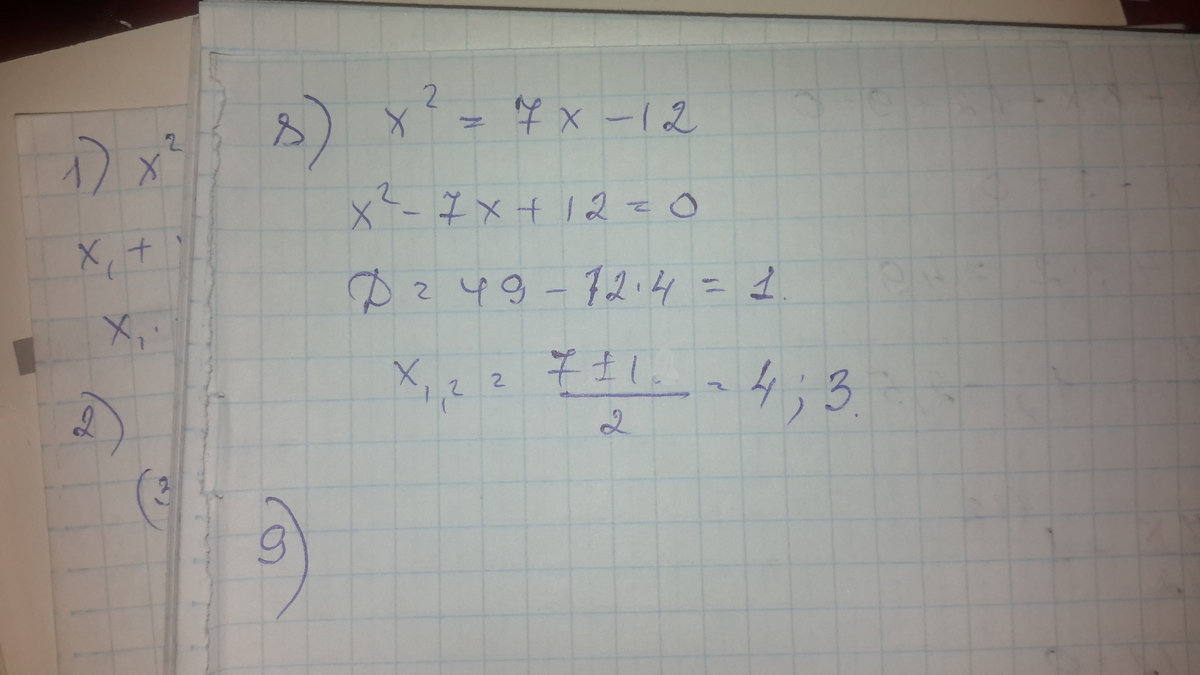 1) x²
x₁ +
x₁ ·
2)
(3
8) x² = 7x - 12
x² - 7x + 12 = 0
D = 49 - 12·4 = 1.
x₁,₂ = (7 ± 1.)/2 = 4; 3.
9)